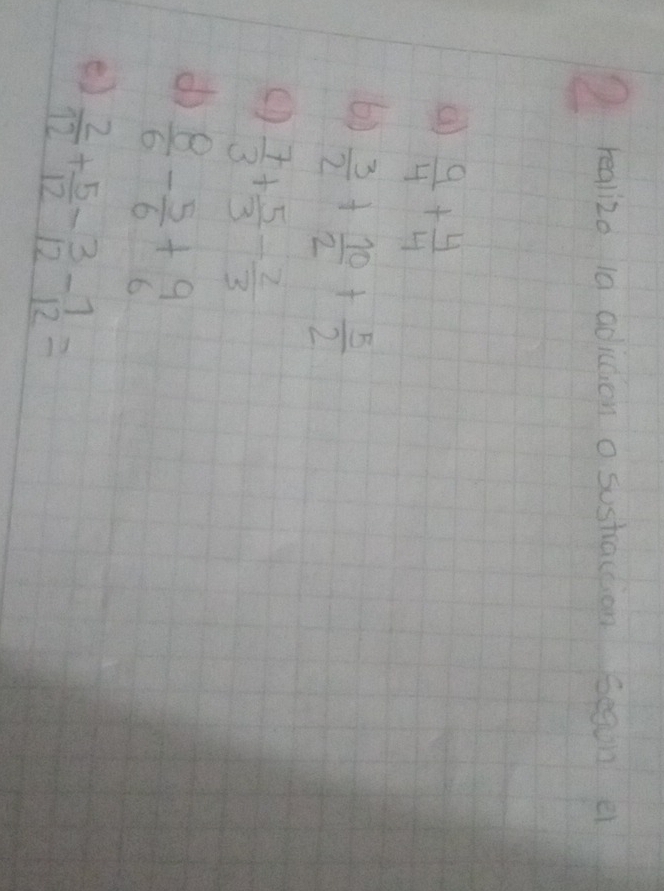 2 realizo la adiccion o sustraccion segun el
a) 9/4 + 4/4
b) 3/2 + 10/2 + 5/2
c) 7/3 + 5/3 - 2/3
d) 8/6 - 5/6 + 9/6
e) 2/12 + 5/12 - 3/12 - 1/12 =